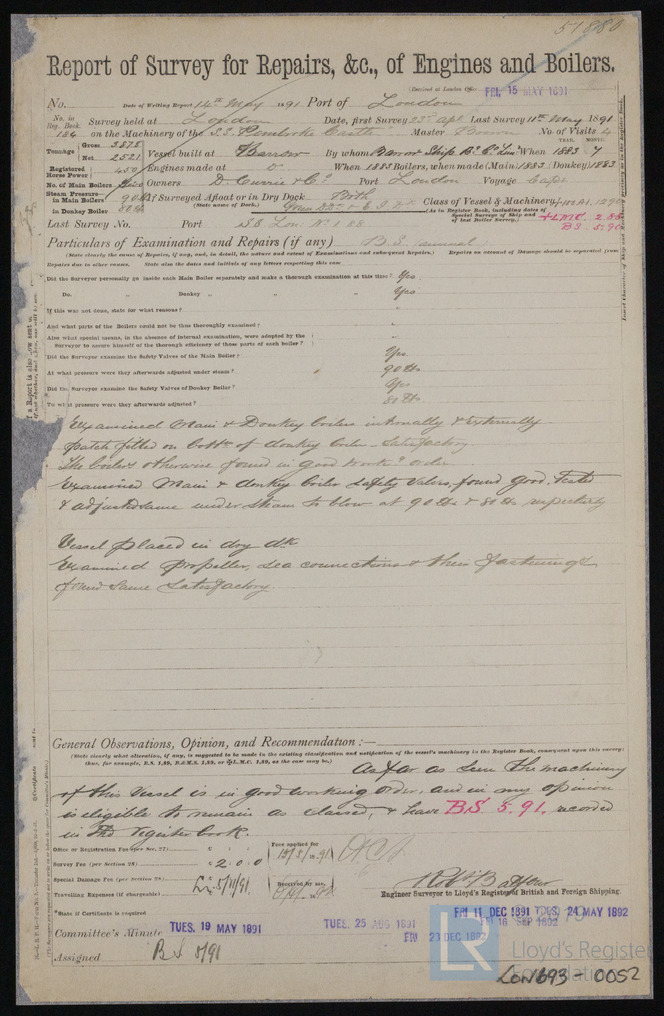 51880
Report of Survey for Repairs, &c., of Engines and Boilers.
(Received at London Office FRI. 15 MAY 1891
No. Date of Writing Report 14th May 1891 Port of London
No. in Reg. Book. Survey held at London Date, first Survey 23rd Apl Last Survey 11th May 1891
184 on the Machinery of the S.S. Pembroke Castle Master Brown No. of Visits 4
Tonnage Gross 3878 Net 2521 Vessel built at Barrow By whom Barrow Ship Bg Co Lim When 1883 7
YEAR. MONTH.
Registered Horse Power 450 Engines made at Do When 1883 Boilers, when made (Main) 1883 (Donkey) 1883
No. of Main Boilers Owners D. Currie & Co Port London Voyage Cape
Steam Pressure in Main Boilers 90 lb If Surveyed Afloat or in Dry Dock Both
(State name of Dock.)
in Donkey Boiler 80 lb
Class of Vessel & Machinery 100 A1. 12.90
As in Register Book, including dates of Special Survey of Ship and of last Boiler Survey.) + L.M.C. 2.88
B.S. 5.90
Last Survey No. Port
Particulars of Examination and Repairs (if any) B.S. annual
(State clearly the cause of Repairs, if any, and, in detail, the nature and extent of Examinations and subsequent Repairs.) Repairs on account of Damage should be separated from
Repairs due to other causes. State also the dates and initials of any letters respecting this case
Did the Surveyor personally go inside each Main Boiler separately and make a thorough examination at this time? Yes.
Do. " Donkey " " " Yes
If this was not done, state for what reasons? "
And what parts of the Boilers could not be thus thoroughly examined? "
Also what special means, in the absence of internal examination, were adopted by the
Surveyor to assure himself of the thorough efficiency of those parts of each boiler? "
Did the Surveyor examine the Safety Valves of the Main Boiler? Yes.
At what pressure were they afterwards adjusted under steam? 90 lbs
Did the Surveyor examine the Safety Valves of Donkey Boiler? Yes
To what pressure were they afterwards adjusted? 80 lbs
Examined Main & Donkey boilers internally & externally
patch fitted on bottm of donkey boiler. Satisfactory
The boilers otherwise found in good workg order
Examined Main & donkey boiler safety valves, found good. Tested
& adjusted same under steam to blow at 90 lbs & 80 lbs respectively
Vessel placed in dry dk
Examined propeller, sea connections & their fastenings
found same Satisfactory.
General Observations, Opinion, and Recommendation:—
(State clearly what alteration, if any, is suggested to be made in the existing classification and notification of the vessel's machinery in the Register Book, consequent upon this survey;
thus, for example, B.S. 1.89, B.&M.S. 1.89, or L.M.C. 1.89, as the case may be.)
As far as seen the machinery
of this vessel is in good working order, and in my opinion
is eligible to remain as classed, & have B.S. 5.91. recorded
in the register book.
Office or Registration Fee (per Sec. 27) : : Fees applied for
Survey Fee (per Section 28) £ 2 : 0 : 0 15/5/1891
Special Damage Fee (per Section 28) Received by me,
Travelling Expenses (if chargeable)
Robt Balfour
Engineer Surveyor to Lloyd's Register of British and Foreign Shipping.
State if Certificate is required
FRI 11 DEC 1891 TUES. 24 MAY 1892
Committee's Minute TUES. 19 MAY 1891 TUES. 25 AUG 1891 FRI 16 SEP 1892
FRI 23 DEC 1892
Assigned B S 5/91
LR
Lloyd's Register
Foundation
LON693-0052